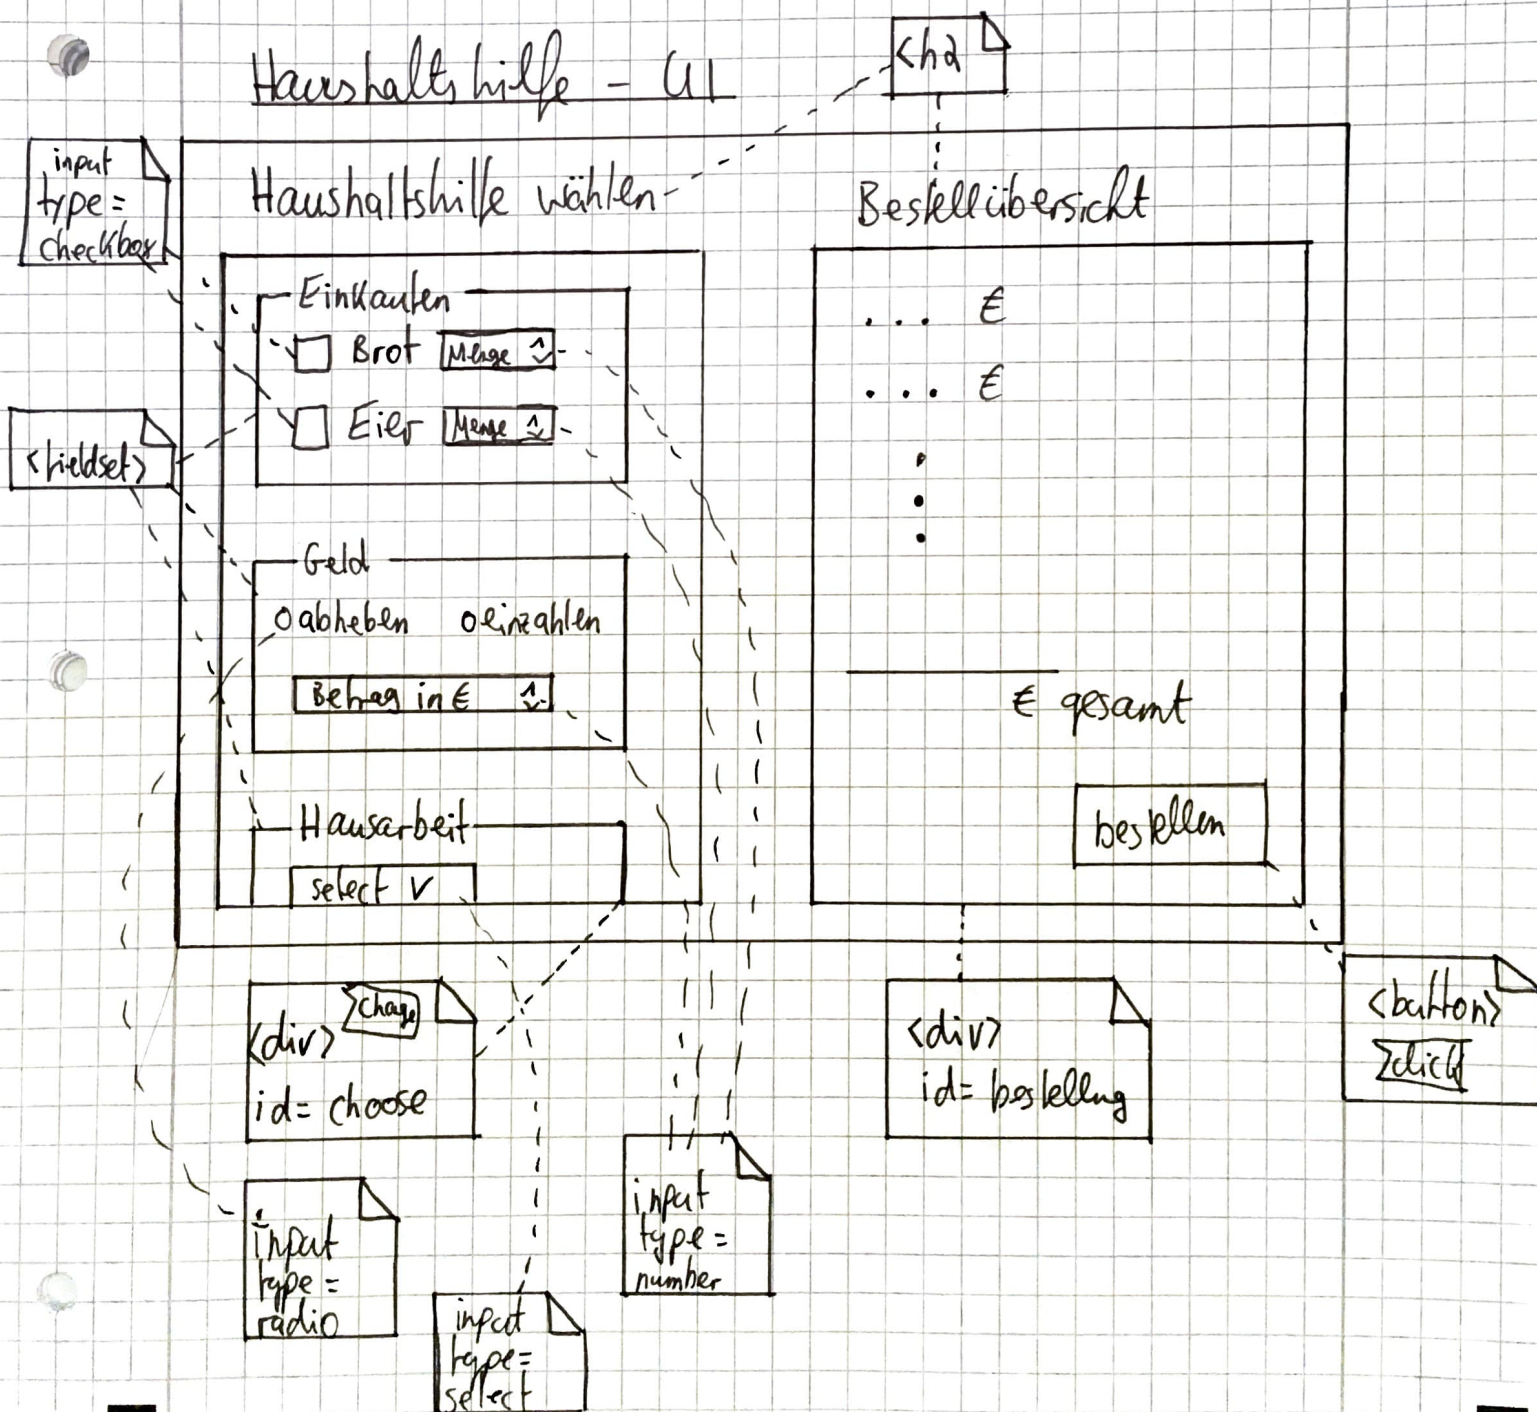 Haushaltshilfe - UI
<h2
input
type =
checkbox
Haushaltshilfe wählen
Bestellübersicht
Einkaufen
Brot Menge
Eier Menge
<fieldset>
Geld
abheben einzahlen
Betrag in €
Hausarbeit
select v
... €
... €
€ gesamt
bestellen
<div> change
id= choose
<div>
id= bestellung
<button>
click
input
type =
radio
input
type =
number
input
type =
select